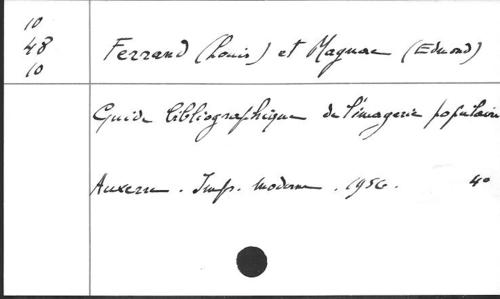 10
48
10
Ferrand (Louis) et Magnac (Edmond)
Guide bibliographique de l'imagerie populaire
Auxerre. Imp. moderne. 1956. 4°